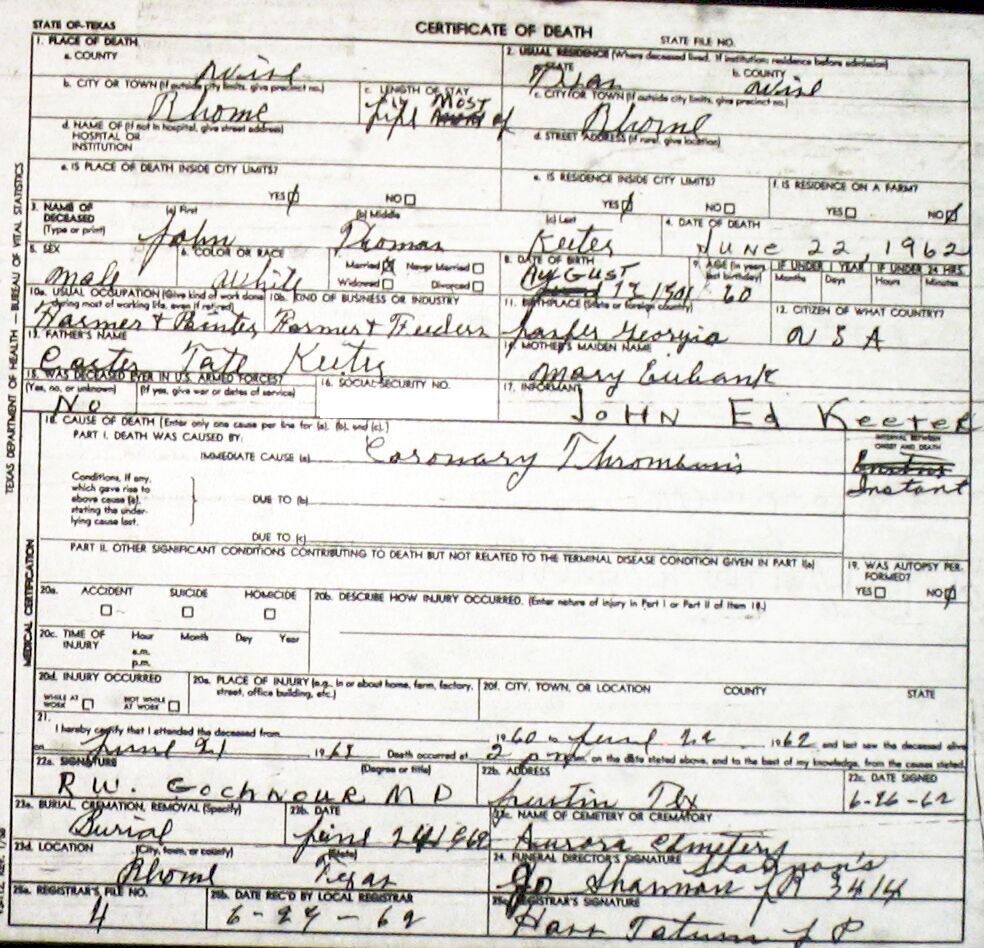 STATE OF TEXAS
CERTIFICATE OF DEATH
STATE FILE NO.
1. PLACE OF DEATH
2. USUAL RESIDENCE (Where deceased lived. If institution: residence before admission)
a. COUNTY
Wise
a. STATE
Texas
b. COUNTY
Wise
b. CITY OR TOWN (If outside city limits, give precinct no.)
Rhome
c. LENGTH OF STAY
MOST
life of
c. CITY OR TOWN (If outside city limits, give precinct no.)
Rhome
d. NAME OF (If not in hospital, give street address)
HOSPITAL OR
INSTITUTION
d. STREET ADDRESS (If rural, give location)
e. IS PLACE OF DEATH INSIDE CITY LIMITS?
YES NO
e. IS RESIDENCE INSIDE CITY LIMITS?
YES NO
f. IS RESIDENCE ON A FARM?
YES NO
3. NAME OF
DECEASED
(Type or print)
(a) First
John
(b) Middle
Thomas
(c) Last
Keeter
4. DATE OF DEATH
JUNE 22, 1962
5. SEX
Male
6. COLOR OR RACE
White
7.
Married Never Married
Widowed Divorced
8. DATE OF BIRTH
AUGUST
17 1901
9. AGE (in years
last birthday)
60
IF UNDER 1 YEAR
Months Days
IF UNDER 24 HRS.
Hours Minutes
10a. USUAL OCCUPATION (Give kind of work done
during most of working life, even if retired)
Farmer &
10b. KIND OF BUSINESS OR INDUSTRY
Farmer &
11. BIRTHPLACE (State or foreign country)
Georgia
12. CITIZEN OF WHAT COUNTRY?
U S A
13. FATHER'S NAME
Carter Tate Keeter
14. MOTHER'S MAIDEN NAME
Mary Eubank
15. WAS DECEASED EVER IN U.S. ARMED FORCES?
(Yes, no, or unknown) (If yes, give war or dates of service)
No
16. SOCIAL SECURITY NO.
17. INFORMANT
JOHN Ed Keeter
18. CAUSE OF DEATH [Enter only one cause per line for (a), (b), and (c).]
PART I. DEATH WAS CAUSED BY:
IMMEDIATE CAUSE (a)
Coronary Thrombosis
INTERVAL BETWEEN
ONSET AND DEATH
Instant
Conditions, if any,
which gave rise to
above cause (a),
stating the under-
lying cause last.
DUE TO (b)
DUE TO (c)
PART II. OTHER SIGNIFICANT CONDITIONS CONTRIBUTING TO DEATH BUT NOT RELATED TO THE TERMINAL DISEASE CONDITION GIVEN IN PART I(a)
19. WAS AUTOPSY PER-
FORMED?
YES NO
20a. ACCIDENT SUICIDE HOMICIDE
20b. DESCRIBE HOW INJURY OCCURRED. (Enter nature of injury in Part I or Part II of Item 18.)
20c. TIME OF
INJURY
Hour Month Day Year
a.m.
p.m.
20d. INJURY OCCURRED
WHILE AT
WORK
NOT WHILE
AT WORK
20e. PLACE OF INJURY (e.g., in or about home, farm, factory,
street, office building, etc.)
20f. CITY, TOWN, OR LOCATION COUNTY STATE
21.
I hereby certify that I attended the deceased from 1960 to June 22 1962 and last saw the deceased alive
on June 21 196 Death occurred at 2 p m., on the date stated above, and to the best of my knowledge, from the causes stated.
22a. SIGNATURE
(Degree or title)
R W. GOCHNOUR MD
22b. ADDRESS
Justin Tex
22c. DATE SIGNED
6-26-62
23a. BURIAL, CREMATION, REMOVAL (Specify)
Burial
23b. DATE
June 24 1962
23c. NAME OF CEMETERY OR CREMATORY
Aurora Cemetery
23d. LOCATION
(City, town, or county)
(State)
Rhome Texas
24. FUNERAL DIRECTOR'S SIGNATURE
Shannon's
Jo Shannon 3414
25a. REGISTRAR'S FILE NO.
4
25b. DATE REC'D BY LOCAL REGISTRAR
6-27-62
25c. REGISTRAR'S SIGNATURE
Tatum J P
TEXAS DEPARTMENT OF HEALTH — BUREAU OF VITAL STATISTICS
MEDICAL CERTIFICATION